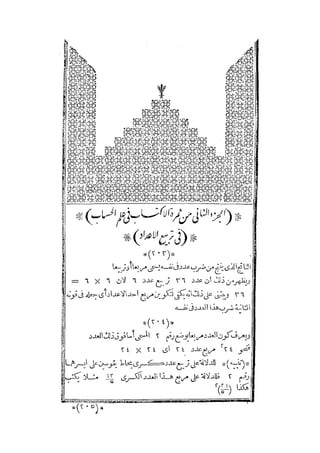 *(الجزء الثانى من ثمرة الاكتساب فى علم الحساب)*
*(فى تربيع الاعداد)*
*(٢٠٣)*
الناتج الذى ينتج من ضرب عدد فى نفسه يسمى مربعا أو تربيعا
ويظهر من ذلك ان عدد ٣٦ تربيع عدد ٦ لان ٦ × ٦ =
٣٦ وينبنى على ذلك انه يكفى لتكوين مربع احد الاعداد أى جعله فى قوته
الثانية ضرب هذا العدد فى نفسه
*(٢٠٤)*
ويعرف كون العدد مربعا بوضع رقم ٢ المسمى أسا فوق ذلك العدد
فنحو ٢٤² مربع عدد ٢٤ اى ٢٤ × ٢٤
*(تنبيه)* للدلالة على تربيع عدد كسرى يحاط بقوسين على ايسرهما
رقم ٢ فللدلالة على مربع هذا العدد الكسرى مثلا يكتب
هكذا
*(٢٠٥)*